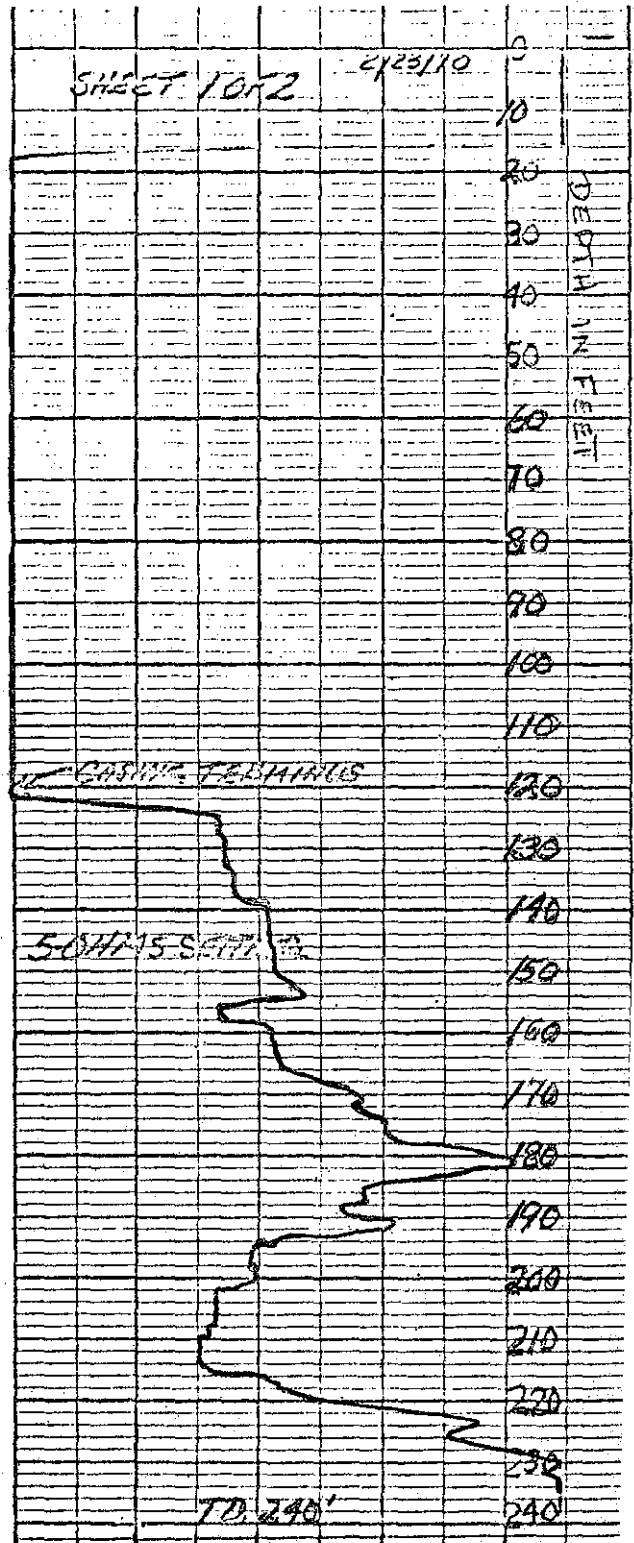 SHEET 1 OF 2
2/23/10
0
10
20
30
40
50
60
70
80
90
100
110
120
130
140
150
160
170
180
190
200
210
220
230
240
DEPTH IN FEET
CASING TERMINUS
5 OHMS
TD. 240'